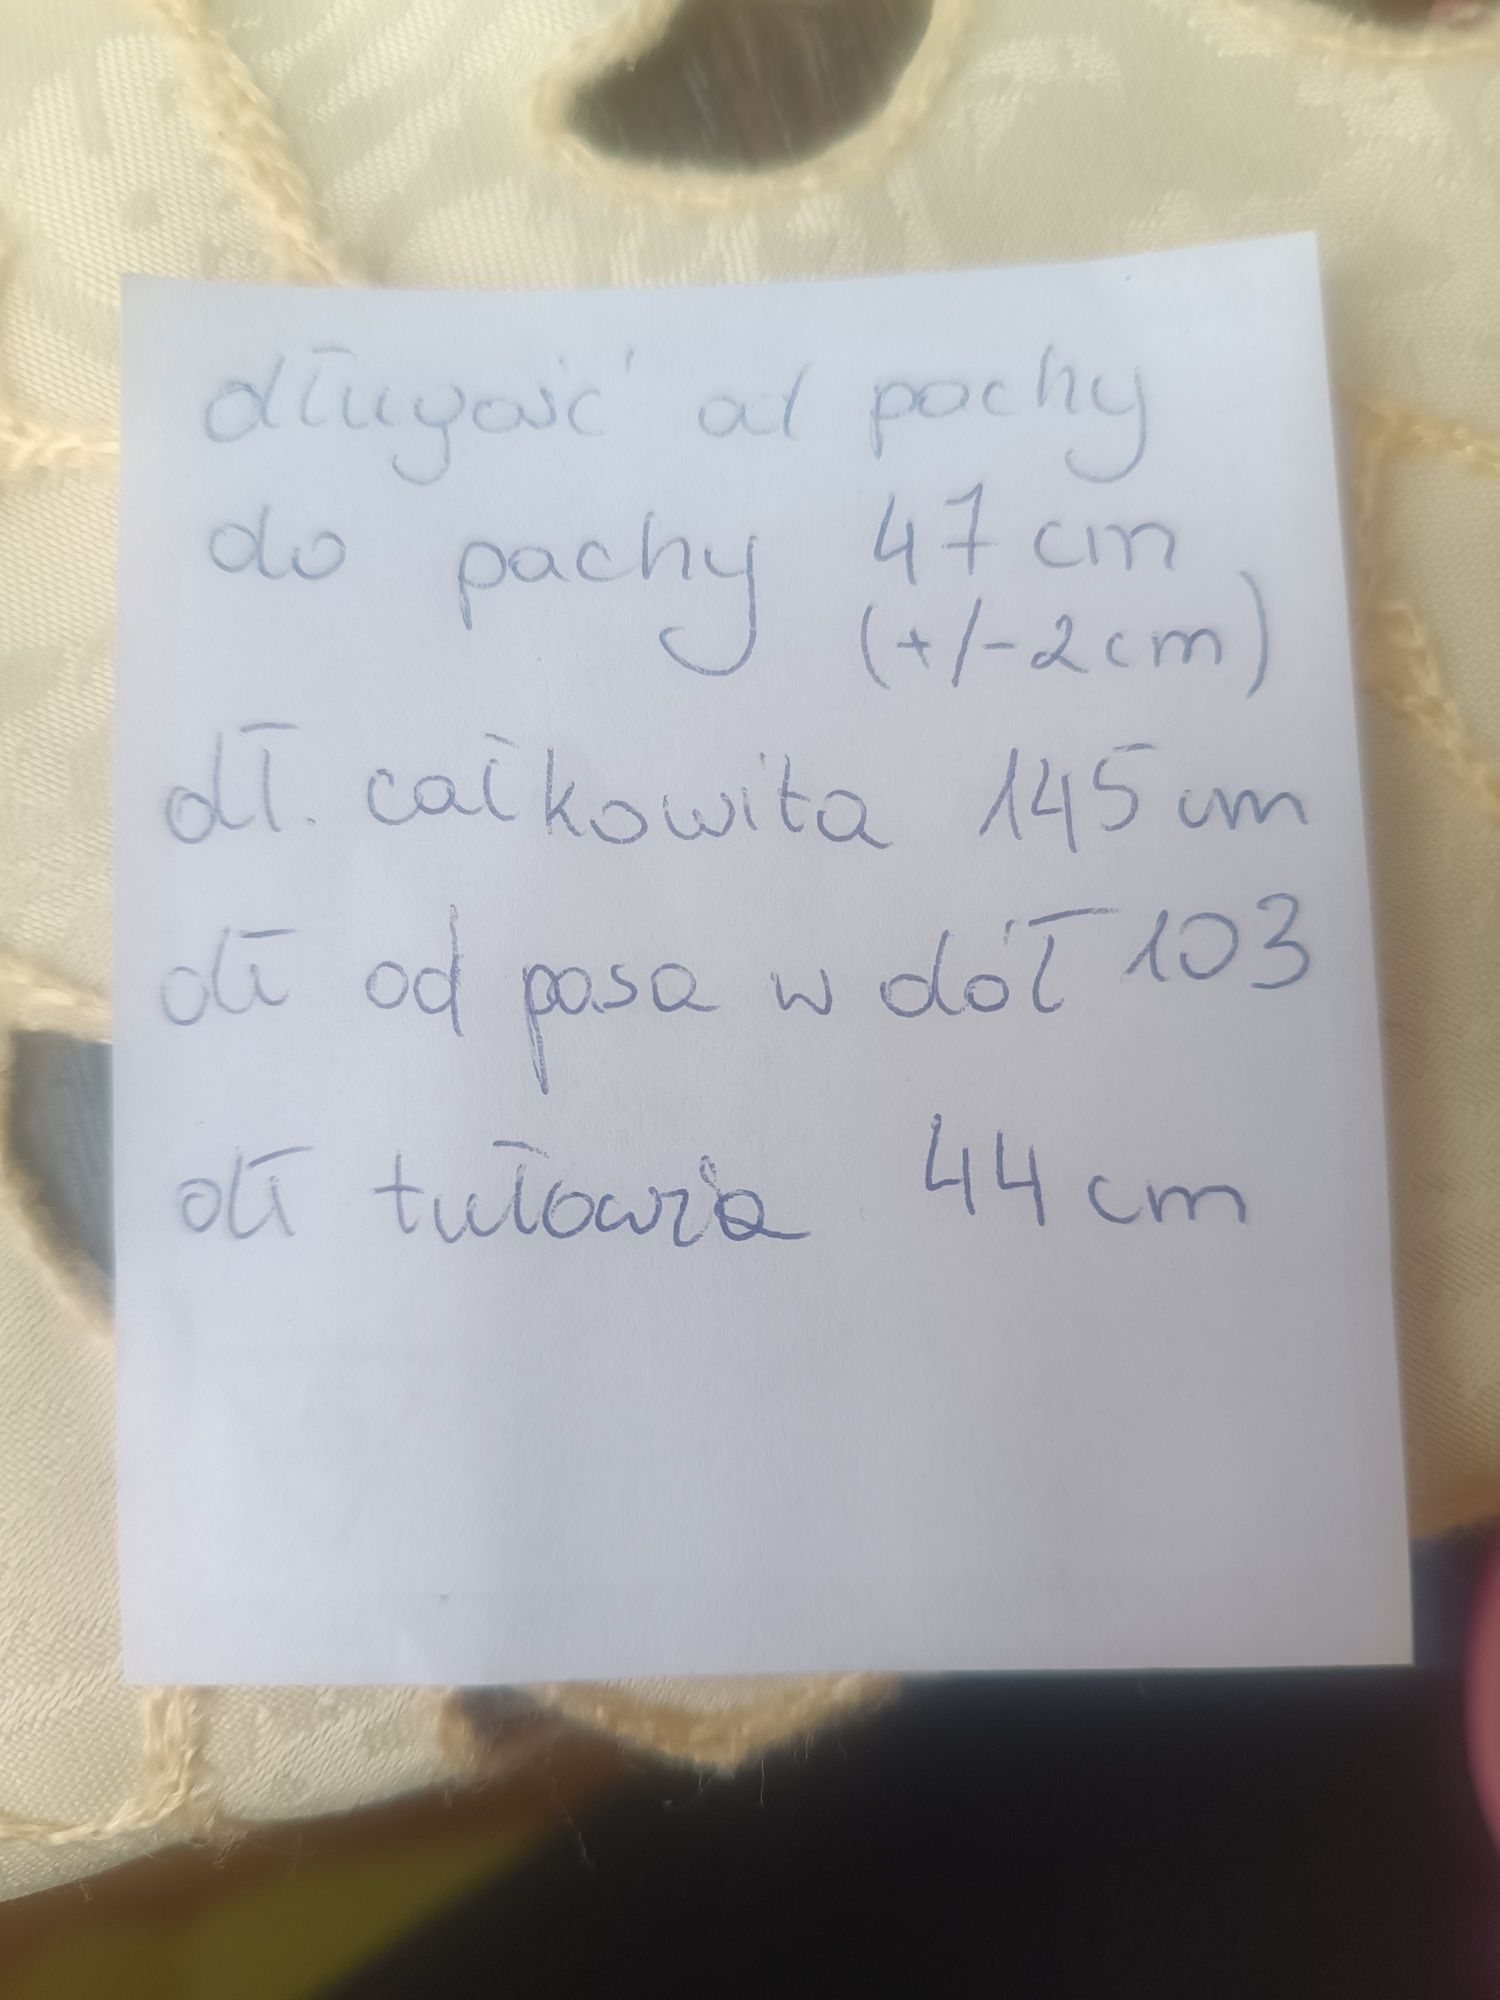 długość od pachy
do pachy 47 cm
(+/- 2 cm)
dł. całkowita 145 cm
dł od pasa w dół 103
dł tułowia 44 cm